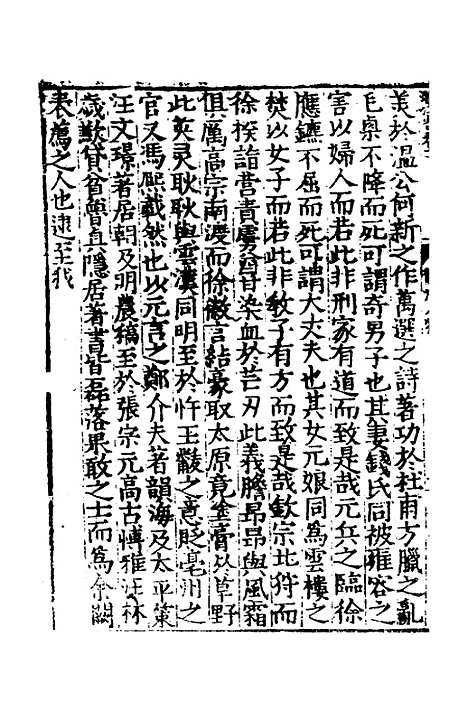 美於溫公何新之作萬選之詩著功於杜甫方臘之亂
毛㮚不降而死可謂奇男子也其妻錢氏同被難容之
害以婦人而若此非刑家有道而致是哉元兵之臨徐
應鑣不屈而死可謂大丈夫也其女元娘同爲雲樓之
焚以女子而若此非教子有方而致是哉欽宗北狩而
徐揆詣營責虜甘染血於芒刃此義膽昂昂與風霜
俱厲高宗南渡而徐徽言結豪取太原竟塗膏以草野
此英灵耿耿與雲漢同明至於忤王黻之意貶亳州之
官又馮熙載然也以元言之鄭介夫著韻海及太平策
汪文璟著居朝及明農稿至於張宗元高古愽雅汪林
歲歎貸貧魯真隱居著書皆磊落果敢之士而爲余闕
表薦之人也逮至我